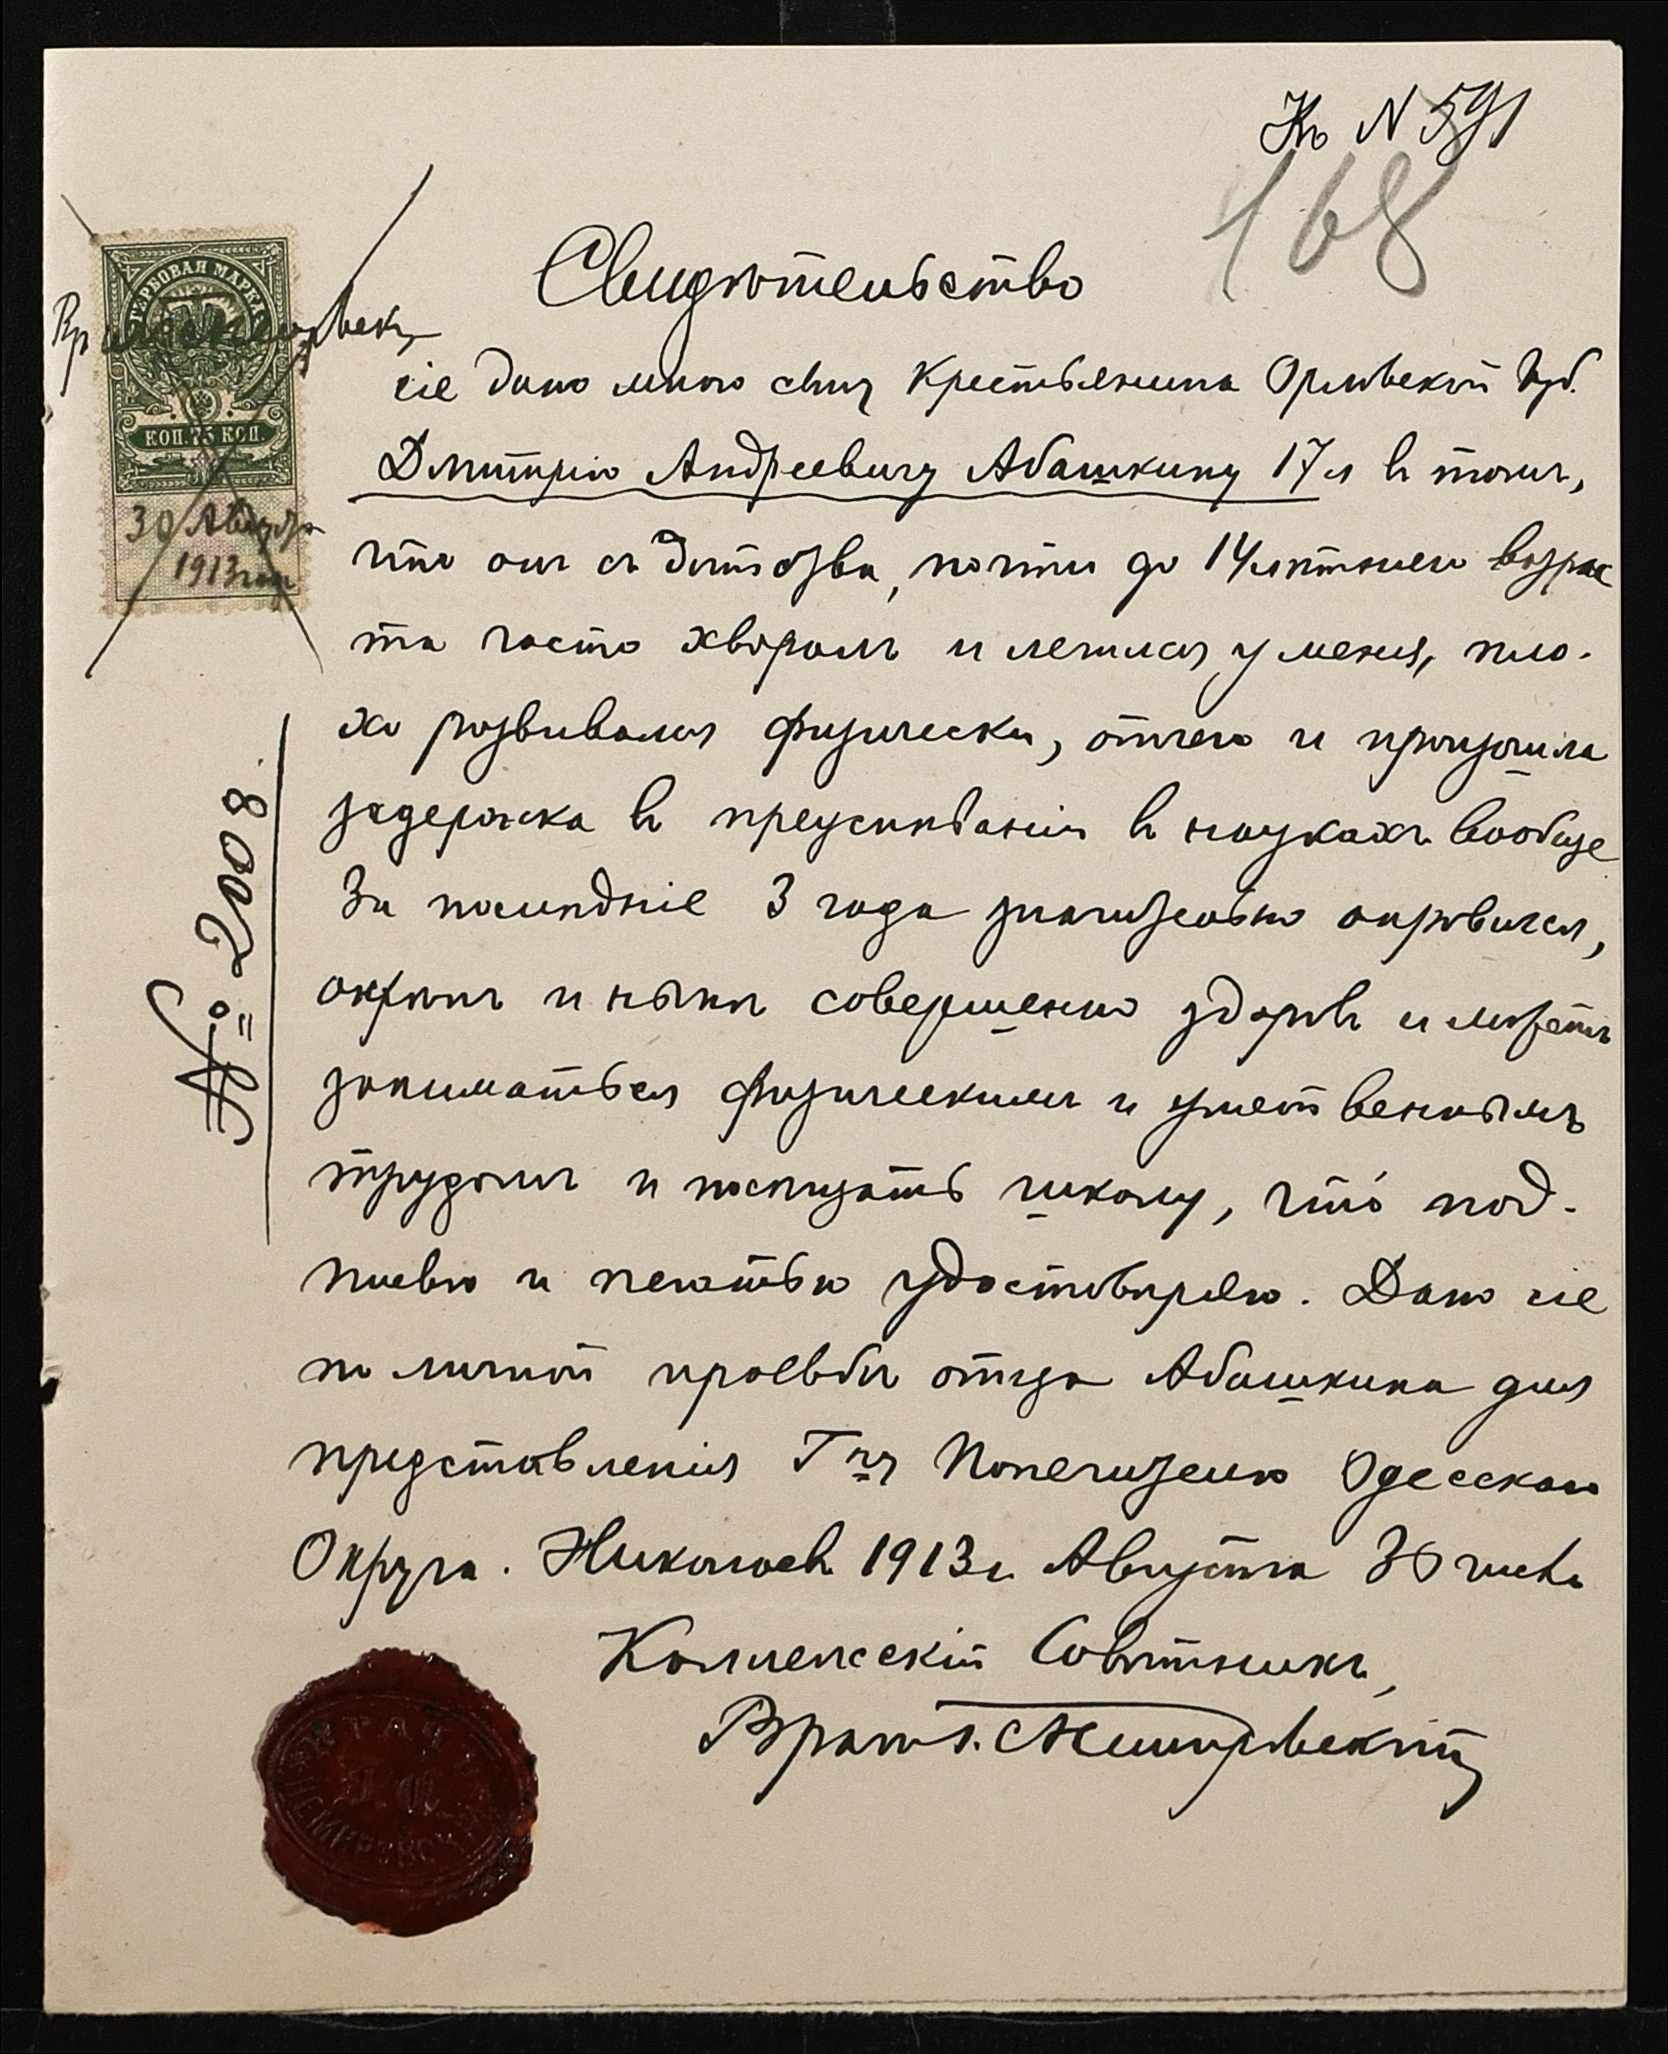 Къ N 591
168
Свидѣтельство
ГЕРБОВАЯ МАРКА
КОП. 75 КОП.
30 Августа
1913 года
сіе дано мною сыну крестьянина Орловской Губ.
Дмитрію Андреевичу Абашкину 17 л въ томъ,
что онъ съ дѣтства, почти до 14 лѣтняго возрас
та часто хворалъ и лечился у меня, пло-
хо развивался физически, отчего и произошла
задержка въ преуспѣваніи въ наукахъ вообще
За послѣдніе 3 года значительно оправился,
окрѣпъ и нынѣ совершенно здоровъ и можетъ
заниматься физическимъ и умственнымъ
трудомъ и посѣщать школу, что́ под-
писью и печатью удостовѣряю. Дано сіе
по личной просьбѣ отца Абашкина для
представленія Гну Попечителю Одесскаго
Округа. Николаевъ 1913 г. Августа 30 числа
Коллежскій Совѣтникъ,
Врачъ
№ 2008.